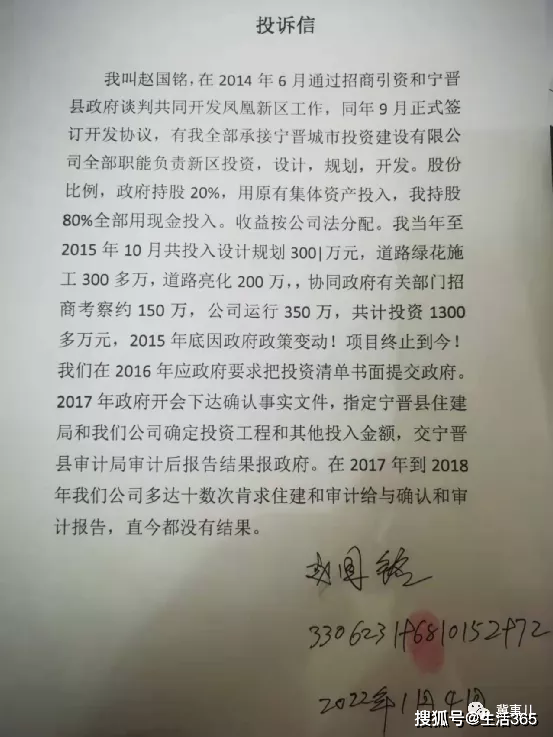 投诉信
我叫赵国铭，在 2014 年 6 月通过招商引资和宁晋
县政府谈判共同开发凤凰新区工作，同年 9 月正式签
订开发协议，有我全部承接宁晋城市投资建设有限公
司全部职能负责新区投资，设计，规划，开发。股份
比例，政府持股 20%，用原有集体资产投入，我持股
80%全部用现金投入。收益按公司法分配。我当年至
2015 年 10 月共投入设计规划 300|万元，道路绿花施
工 300 多万，道路亮化 200 万，，协同政府有关部门招
商考察约 150 万，公司运行 350 万，共计投资 1300
多万元，2015 年底因政府政策变动！项目终止到今！
我们在 2016 年应政府要求把投资清单书面提交政府。
2017 年政府开会下达确认事实文件，指定宁晋县住建
局和我们公司确定投资工程和其他投入金额，交宁晋
县审计局审计后报告结果报政府。在 2017 年到 2018
年我们公司多达十数次肯求住建和审计给与确认和审
计报告，直今都没有结果。
赵国铭
2022年1月4日
冀事儿
搜狐号@生活365